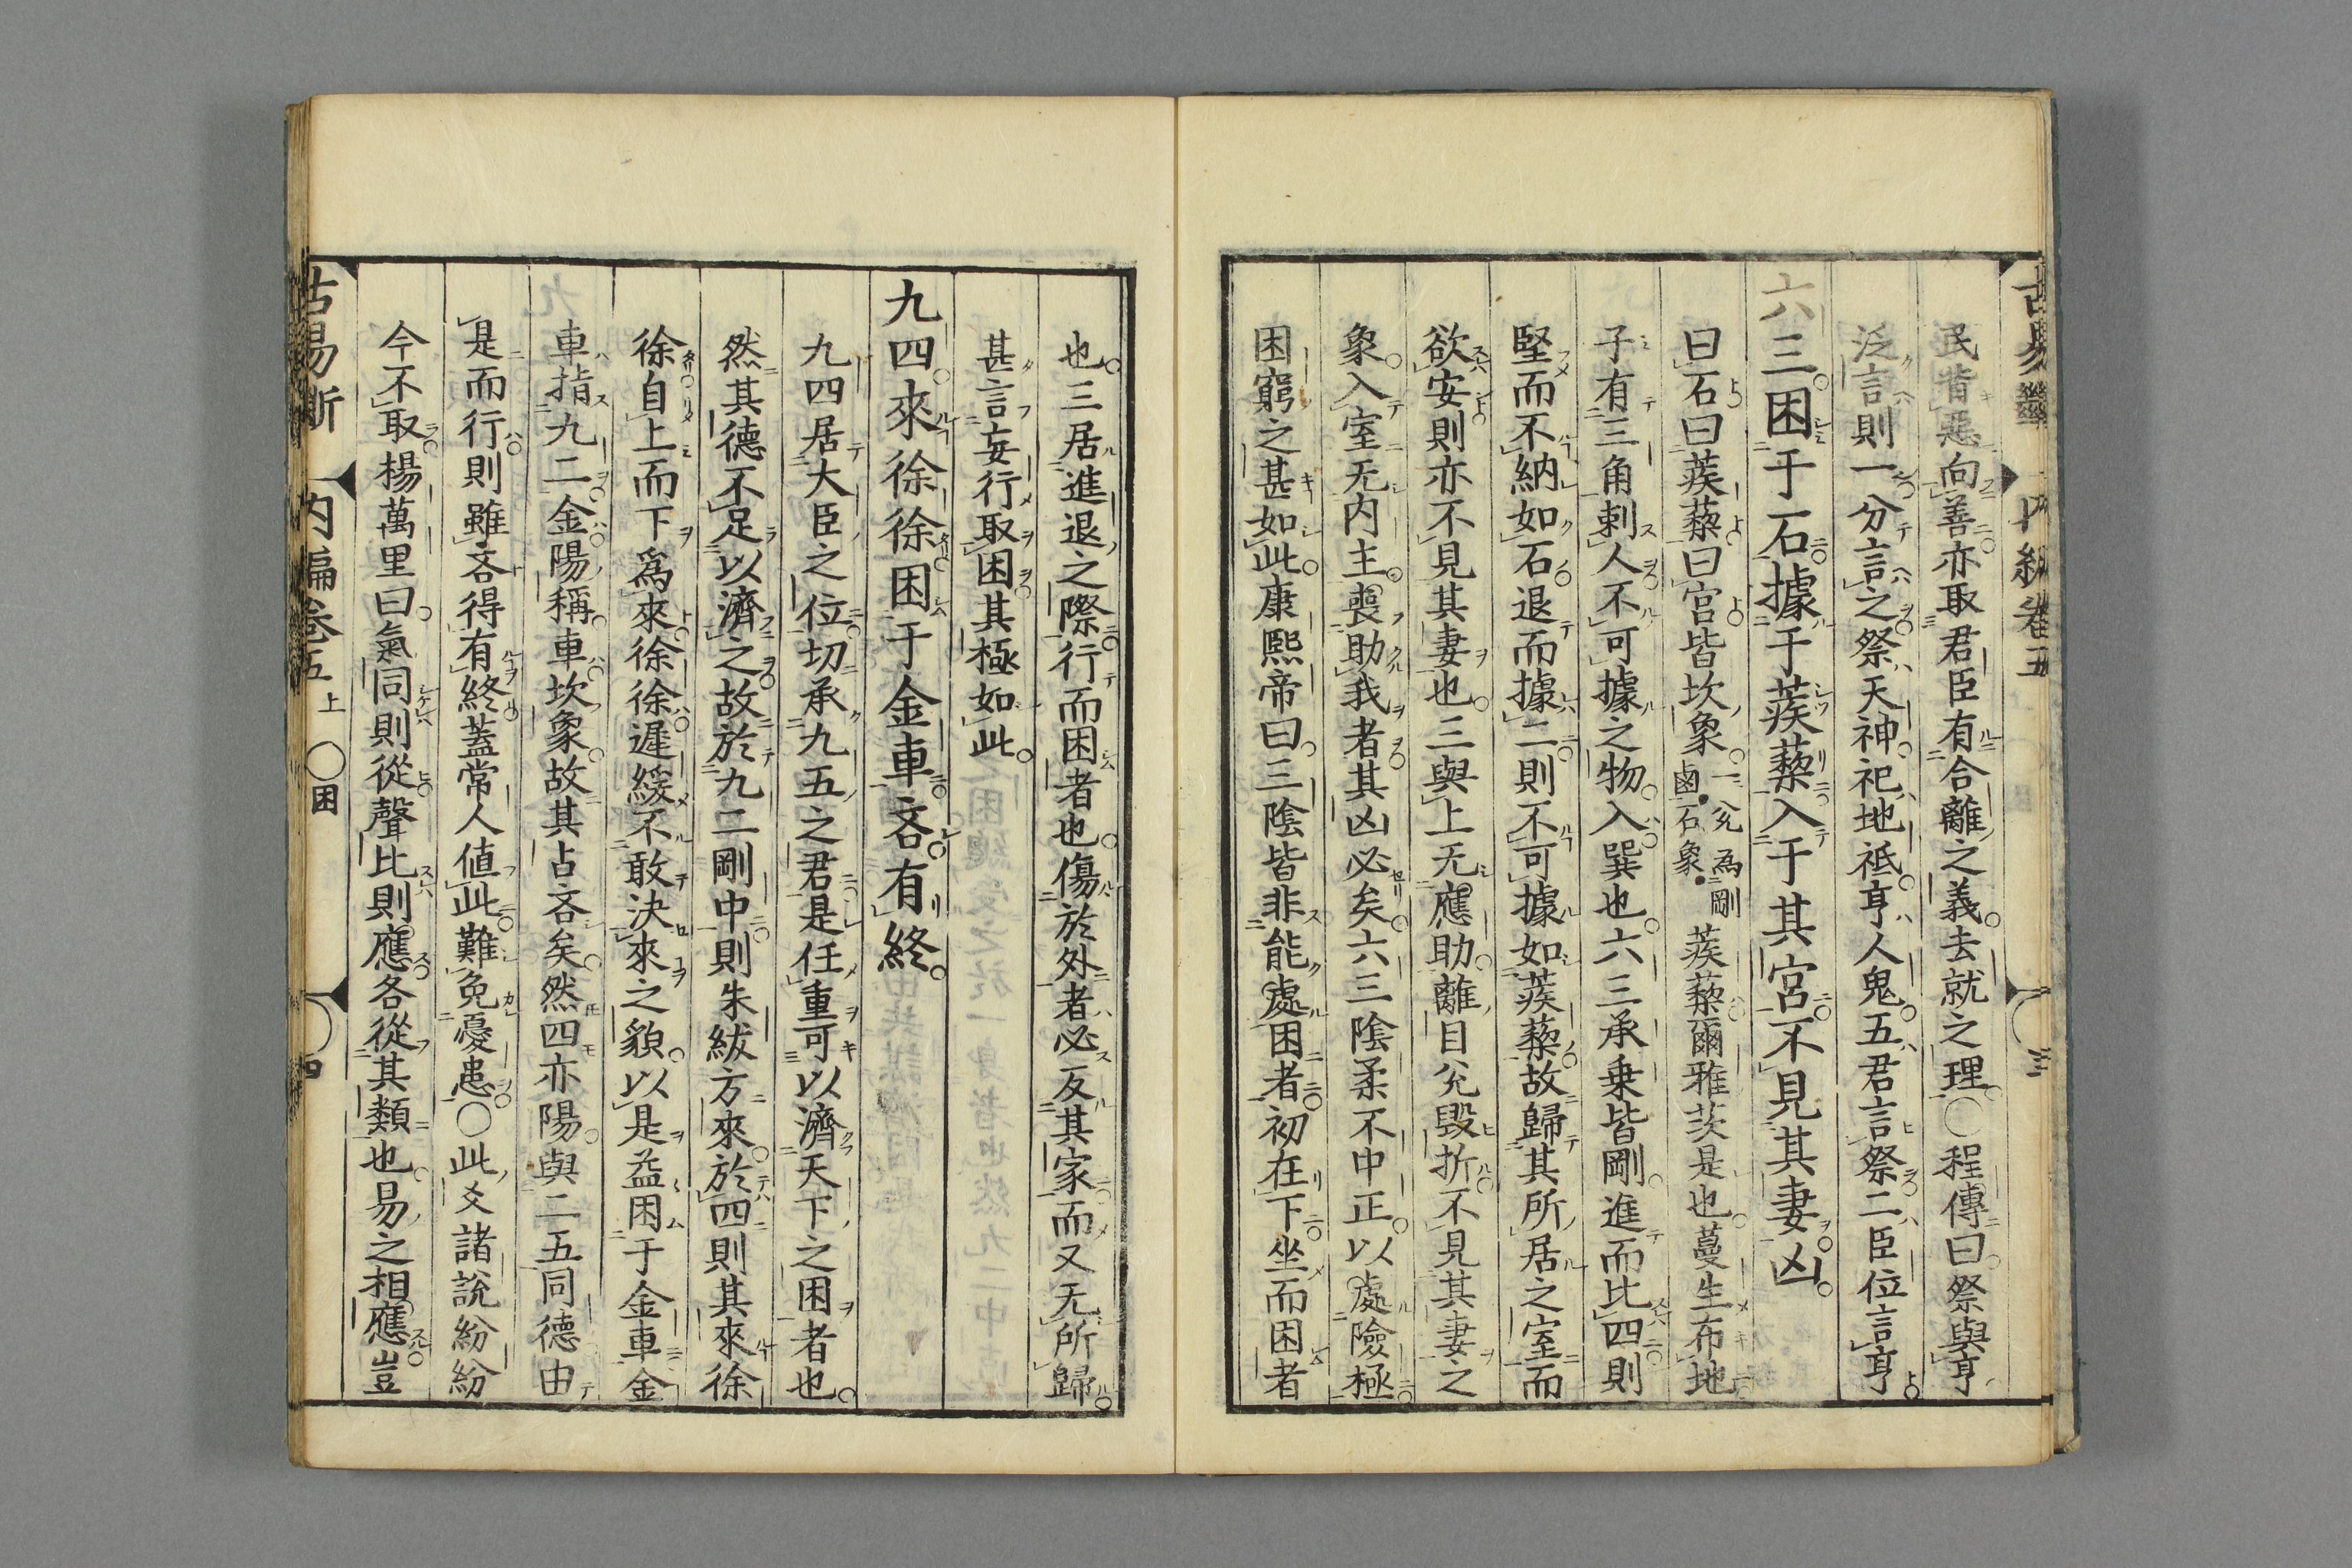 民背惡向善亦取君臣有合離之義去就之理○程傳曰祭與亨
泛言則一分言之祭天神祀地祗亨人鬼五君言祭二臣位言亨
六三困于石據于蒺蔾入于其宮不見其妻凶
曰石曰蒺蔾曰宮皆坎象一兊為剛鹵石象蒺蔾爾雅茨是也蔓生布地
子有三角刺人不可據之物入巽也六三承乗皆剛進而比四則
堅而不納如石退而據二則不可據如蒺蔾故歸其所居之室而
欲安則亦不見其妻也三與上无應助離目兊毀折不見其妻之
象入室无内主喪助我者其凶必矣六三陰柔不中正以處險極
困窮之甚如此康熙帝曰三陰皆非能處困者初在下坐而困者
也三居進退之際行而困者也傷於外者必反其家而又无所歸
甚言妄行取困其極如此
九四來徐徐困于金車吝有終
九四居大臣之位切承九五之君是任重可以濟天下之困者也
然其德不足以濟之故於九二剛中則朱紱方來於四則其來徐
徐自上而下爲來徐徐遲緩不敢決來之貌以是益困于金車金
車指九二金陽稱車坎象故其占吝矣然四亦陽與二五同德由
是而行則雖吝得有終蓋常人値此難免憂患○此爻諸說紛紛
今不取楊萬里曰氣同則從聲比則應各從其類也易之相應豈
古易斷 内編卷五上 ○困 四